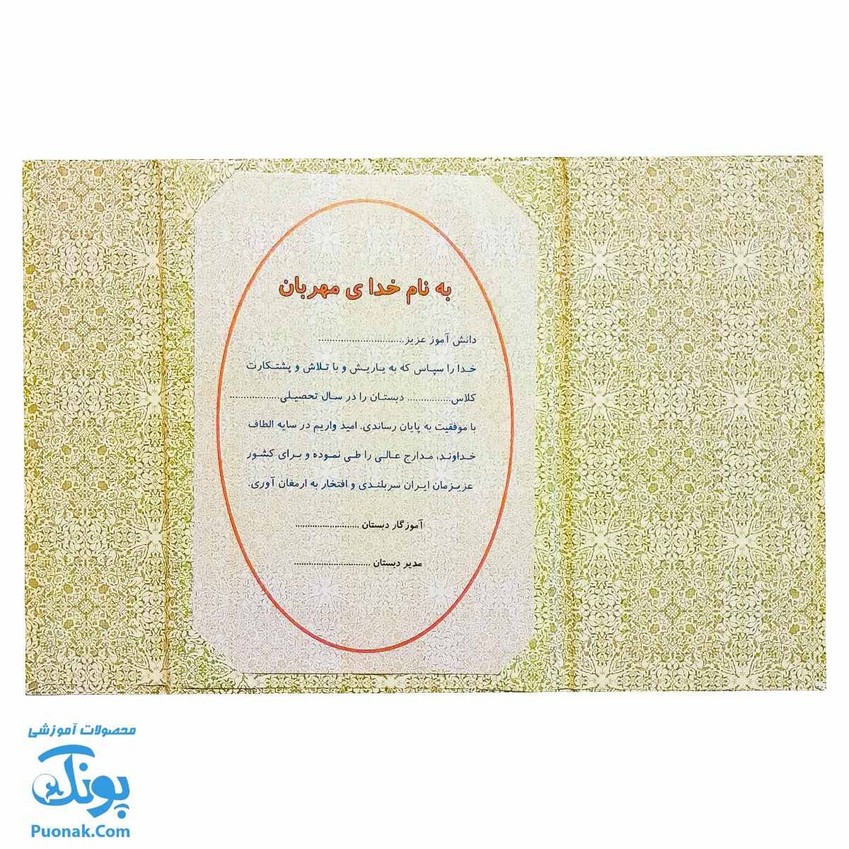 به نام خدا ی مهربان
دانش آموز عزیز..............................
خدا را سپاس که به یاریش و با تلاش و پشتکارت
کلاس............... دبستان را در سال تحصیلی.................
با موفقیت به پایان رساندی. امید واریم در سایه الطاف
خداوند، مدارج عالی را طی نموده و برای کشور
عزیزمان ایران سربلندی و افتخار به ارمغان آوری.
آموزگار دبستان ..........................
مدیر دبستان ...............................
محصولات آموزشی
پونک
Puonak.Com